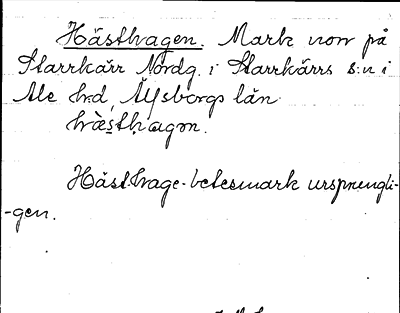 Hästhagen. Mark norr på
Starrkärr Nordg. i Starrkärrs s:n i
Ale hd, Älfsborgs län.
hästhagen.
Hästhage-betesmark ursprungli-
-gen.